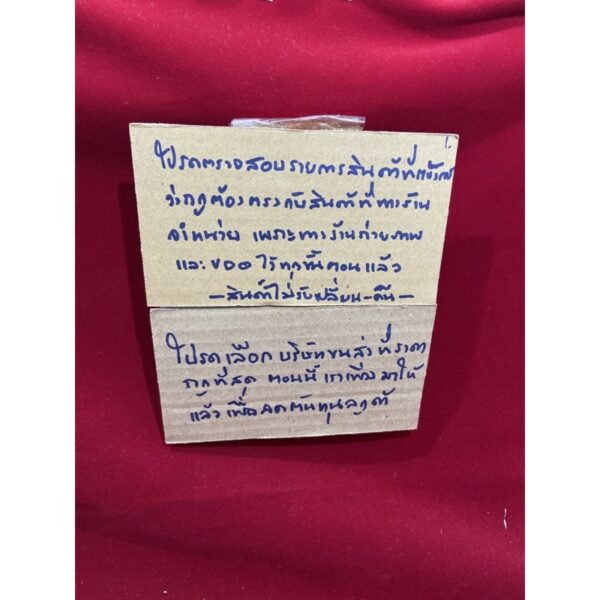 โปรดตรวจสอบรายการสินค้าที่
ว่าถูกต้องตรงกับสินค้าที่ทางร้าน
จำหน่าย เพราะทางร้านถ่ายภาพ
และ VDO ไว้ทุกขั้นตอนแล้ว
-สินค้าไม่รับเปลี่ยน-คืน-
โปรด เลือก บริษัทขนส่ง ที่ราคา
ถูกที่สุด ตอนนี้ เราเพิ่ม มาให้
แล้ว เพื่อ ลดต้นทุน ลูกค้า